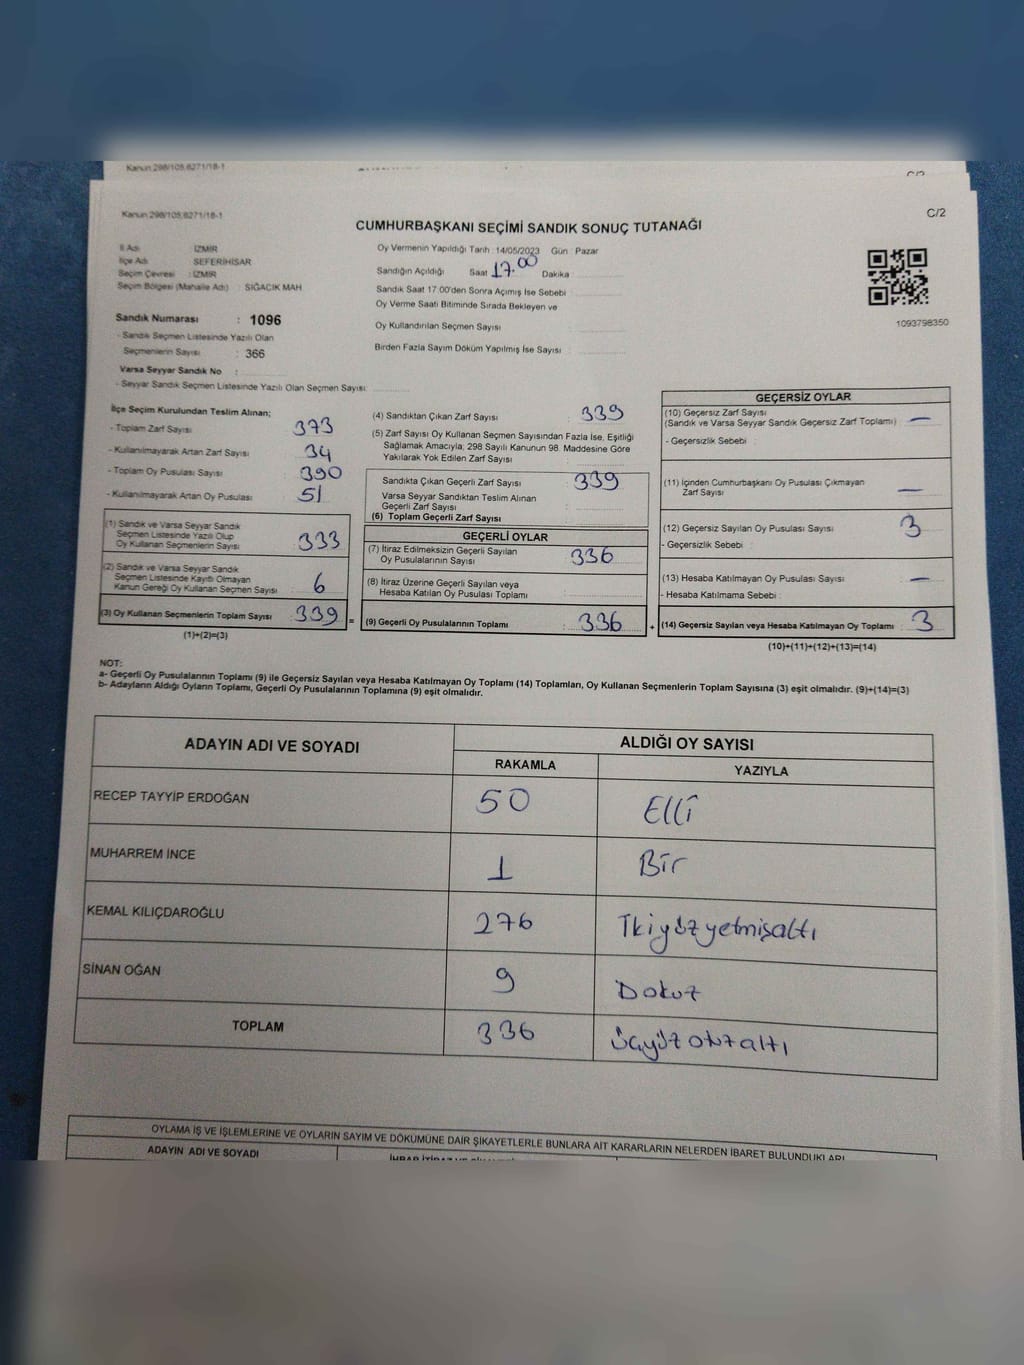 Kanun 298/105,6271/18-1
Kanun 298/105,6271/18-1
C/2
CUMHURBAŞKANI SEÇİMİ SANDIK SONUÇ TUTANAĞI
İl Adı İZMİR
İlçe Adı SEFERİHİSAR
Seçim Çevresi : İZMİR
Seçim Bölgesi (Mahalle Adı) : SIĞACIK MAH
Sandık Numarası : 1096
- Sandık Seçmen Listesinde Yazılı Olan
Seçmenlerin Sayısı : 366
Varsa Seyyar Sandık No :
- Seyyar Sandık Seçmen Listesinde Yazılı Olan Seçmen Sayısı
Oy Vermenin Yapıldığı Tarih : 14/05/2023 Gün : Pazar
Sandığın Açıldığı Saat 17.00 Dakika
Sandık Saat 17:00'den Sonra Açımış İse Sebebi
Oy Verme Saati Bitiminde Sırada Bekleyen ve
Oy Kullandırılan Seçmen Sayısı
Birden Fazla Sayım Döküm Yapılmış İse Sayısı
1093798350
İlçe Seçim Kurulundan Teslim Alınan;
- Toplam Zarf Sayısı : 373
- Kullanılmayarak Artan Zarf Sayısı : 34
- Toplam Oy Pusulası Sayısı : 390
- Kullanılmayarak Artan Oy Pusulası : 51
(1) Sandık ve Varsa Seyyar Sandık
Seçmen Listesinde Yazılı Olup
Oy Kullanan Seçmenlerin Sayısı : 333
(2) Sandık ve Varsa Seyyar Sandık
Seçmen Listesinde Kayıtlı Olmayan
Kanun Gereği Oy Kullanan Seçmen Sayısı : 6
(3) Oy Kullanan Seçmenlerin Toplam Sayısı : 339 =
(1)+(2)=(3)
(4) Sandıktan Çıkan Zarf Sayısı : 339
(5) Zarf Sayısı Oy Kullanan Seçmen Sayısından Fazla İse, Eşitliği
Sağlamak Amacıyla; 298 Sayılı Kanunun 98. Maddesine Göre
Yakılarak Yok Edilen Zarf Sayısı :
Sandıkta Çıkan Geçerli Zarf Sayısı : 339
Varsa Seyyar Sandıktan Teslim Alınan
Geçerli Zarf Sayısı :
(6) Toplam Geçerli Zarf Sayısı
GEÇERLİ OYLAR
(7) İtiraz Edilmeksizin Geçerli Sayılan
Oy Pusulalarının Sayısı : 336
(8) İtiraz Üzerine Geçerli Sayılan veya
Hesaba Katılan Oy Pusulası Toplamı
(9) Geçerli Oy Pusulalarının Toplamı : 336 +
GEÇERSİZ OYLAR
(10) Geçersiz Zarf Sayısı
(Sandık ve Varsa Seyyar Sandık Geçersiz Zarf Toplamı) : —
- Geçersizlik Sebebi :
(11) İçinden Cumhurbaşkanı Oy Pusulası Çıkmayan
Zarf Sayısı —
(12) Geçersiz Sayılan Oy Pusulası Sayısı : 3
- Geçersizlik Sebebi :
(13) Hesaba Katılmayan Oy Pusulası Sayısı : —
- Hesaba Katılmama Sebebi :
(14) Geçersiz Sayılan veya Hesaba Katılmayan Oy Toplamı : 3
(10)+(11)+(12)+(13)=(14)
NOT:
a- Geçerli Oy Pusulalarının Toplamı (9) ile Geçersiz Sayılan veya Hesaba Katılmayan Oy Toplamı (14) Toplamları, Oy Kullanan Seçmenlerin Toplam Sayısına (3) eşit olmalıdır. (9)+(14)=(3)
b- Adayların Aldığı Oyların Toplamı, Geçerli Oy Pusulalarının Toplamına (9) eşit olmalıdır.
ADAYIN ADI VE SOYADI
ALDIĞI OY SAYISI
RAKAMLA YAZIYLA
RECEP TAYYİP ERDOĞAN 50 Elli
MUHARREM İNCE 1 Bir
KEMAL KILIÇDAROĞLU 276 İkiyüzyetmişaltı
SİNAN OĞAN 9 Dokuz
TOPLAM 336 üçyüzotuzaltı
OYLAMA İŞ VE İŞLEMLERİNE VE OYLARIN SAYIM VE DÖKÜMÜNE DAİR ŞİKAYETLERLE BUNLARA AİT KARARLARIN NELERDEN İBARET BULUNDUKLARI
ADAYIN ADI VE SOYADI